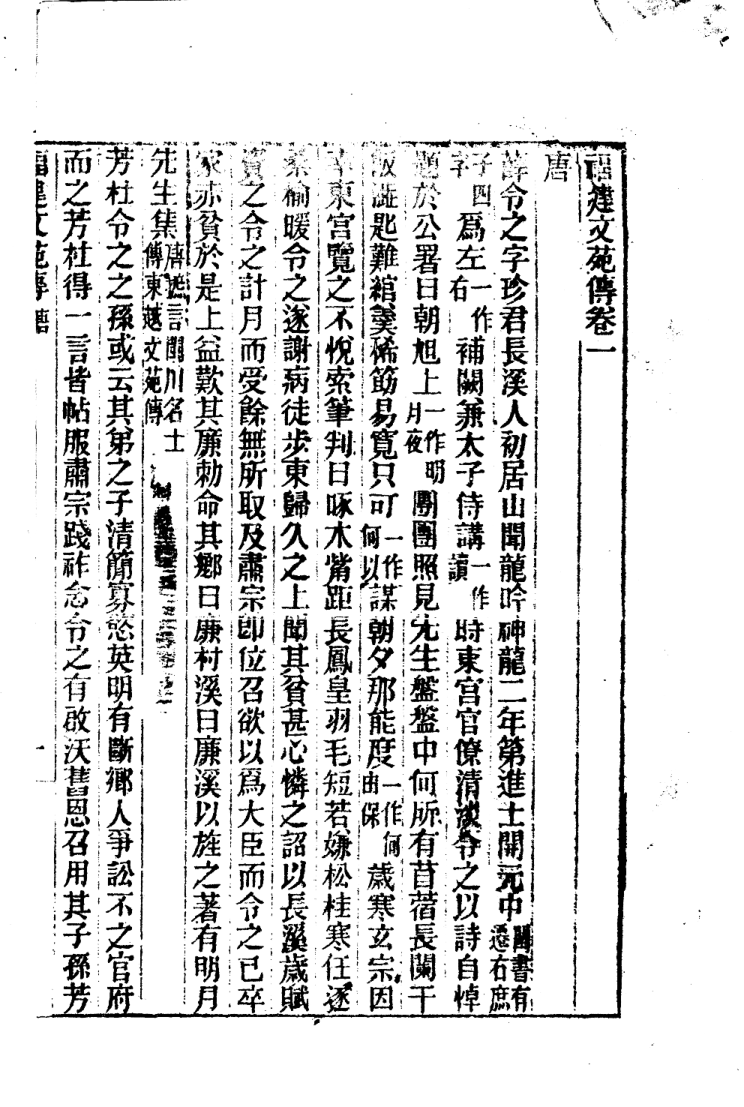 福建文苑傳卷一
唐
薛令之字珍君長溪人初居山聞龍吟神龍二年第進士開元中閩書有遷右庶
子四字爲左一作右補闕兼太子侍講一作讀時東宮官僚清淡令之以詩自悼
題於公署曰朝旭上一作明月夜團團照見先生盤盤中何所有苜蓿長闌干
飯澁匙難綰羹稀筯易寬只可一作何以謀朝夕那能度一作何由保歲寒玄宗因
幸東宮覽之不悅索筆判曰啄木觜距長鳳皇羽毛短若嫌松桂寒任逐
桑榆暖令之遂謝病徒步東歸久之上聞其貧甚心憐之詔以長溪歲賦
資之令之計月而受餘無所取及肅宗卽位召欲以爲大臣而令之已卒
家亦貧於是上益歎其廉勅命其鄕曰廉村溪曰廉溪以旌之著有明月
先生集唐摭言閩川名士傳東越文苑傳
芳杜令之之孫或云其弟之子淸簡寡慾英明有斷鄉人爭訟不之官府
而之芳杜得一言皆帖服肅宗踐祚念令之有啟沃舊恩召用其子孫芳
福建文苑傳 唐 一